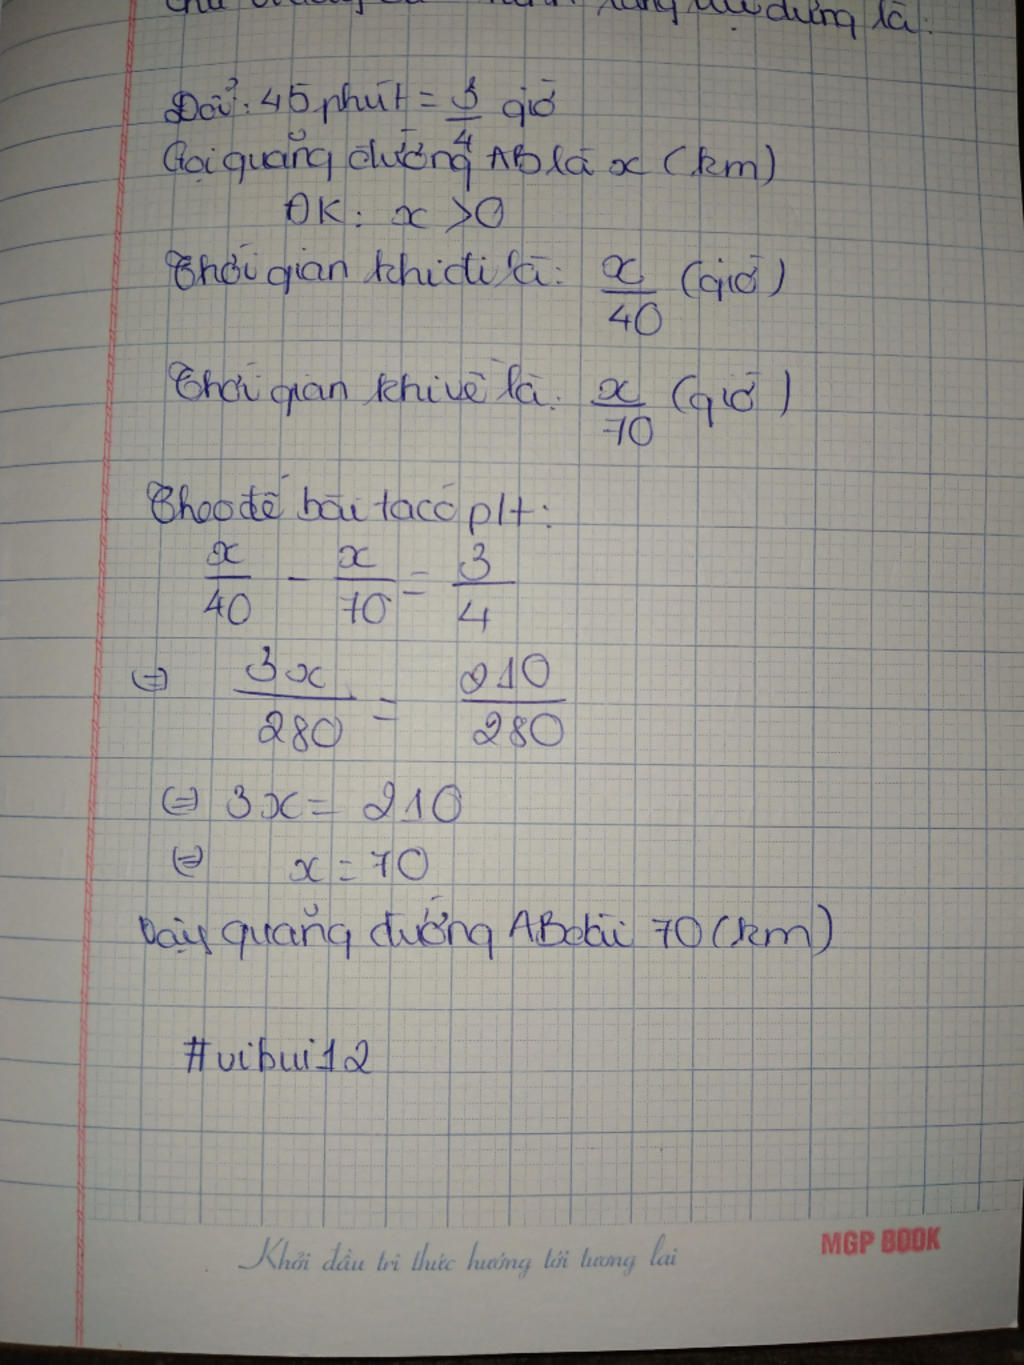 dựng là:
Đổi: 45 phút = 3/4 giờ
Gọi quãng đường AB là x (km)
ĐK: x > 0
Thời gian khi đi là: x/40 (giờ)
Thời gian khi về là: x/70 (giờ)
Theo đề bài ta có pt:
x/40 - x/70 = 3/4
(=) 3x/280 = 210/280
(=) 3x = 210
(=) x = 70
Vậy quãng đường AB dài 70 (km)
#vibui12
Khởi đầu tri thức hướng tới tương lai
MGP BOOK